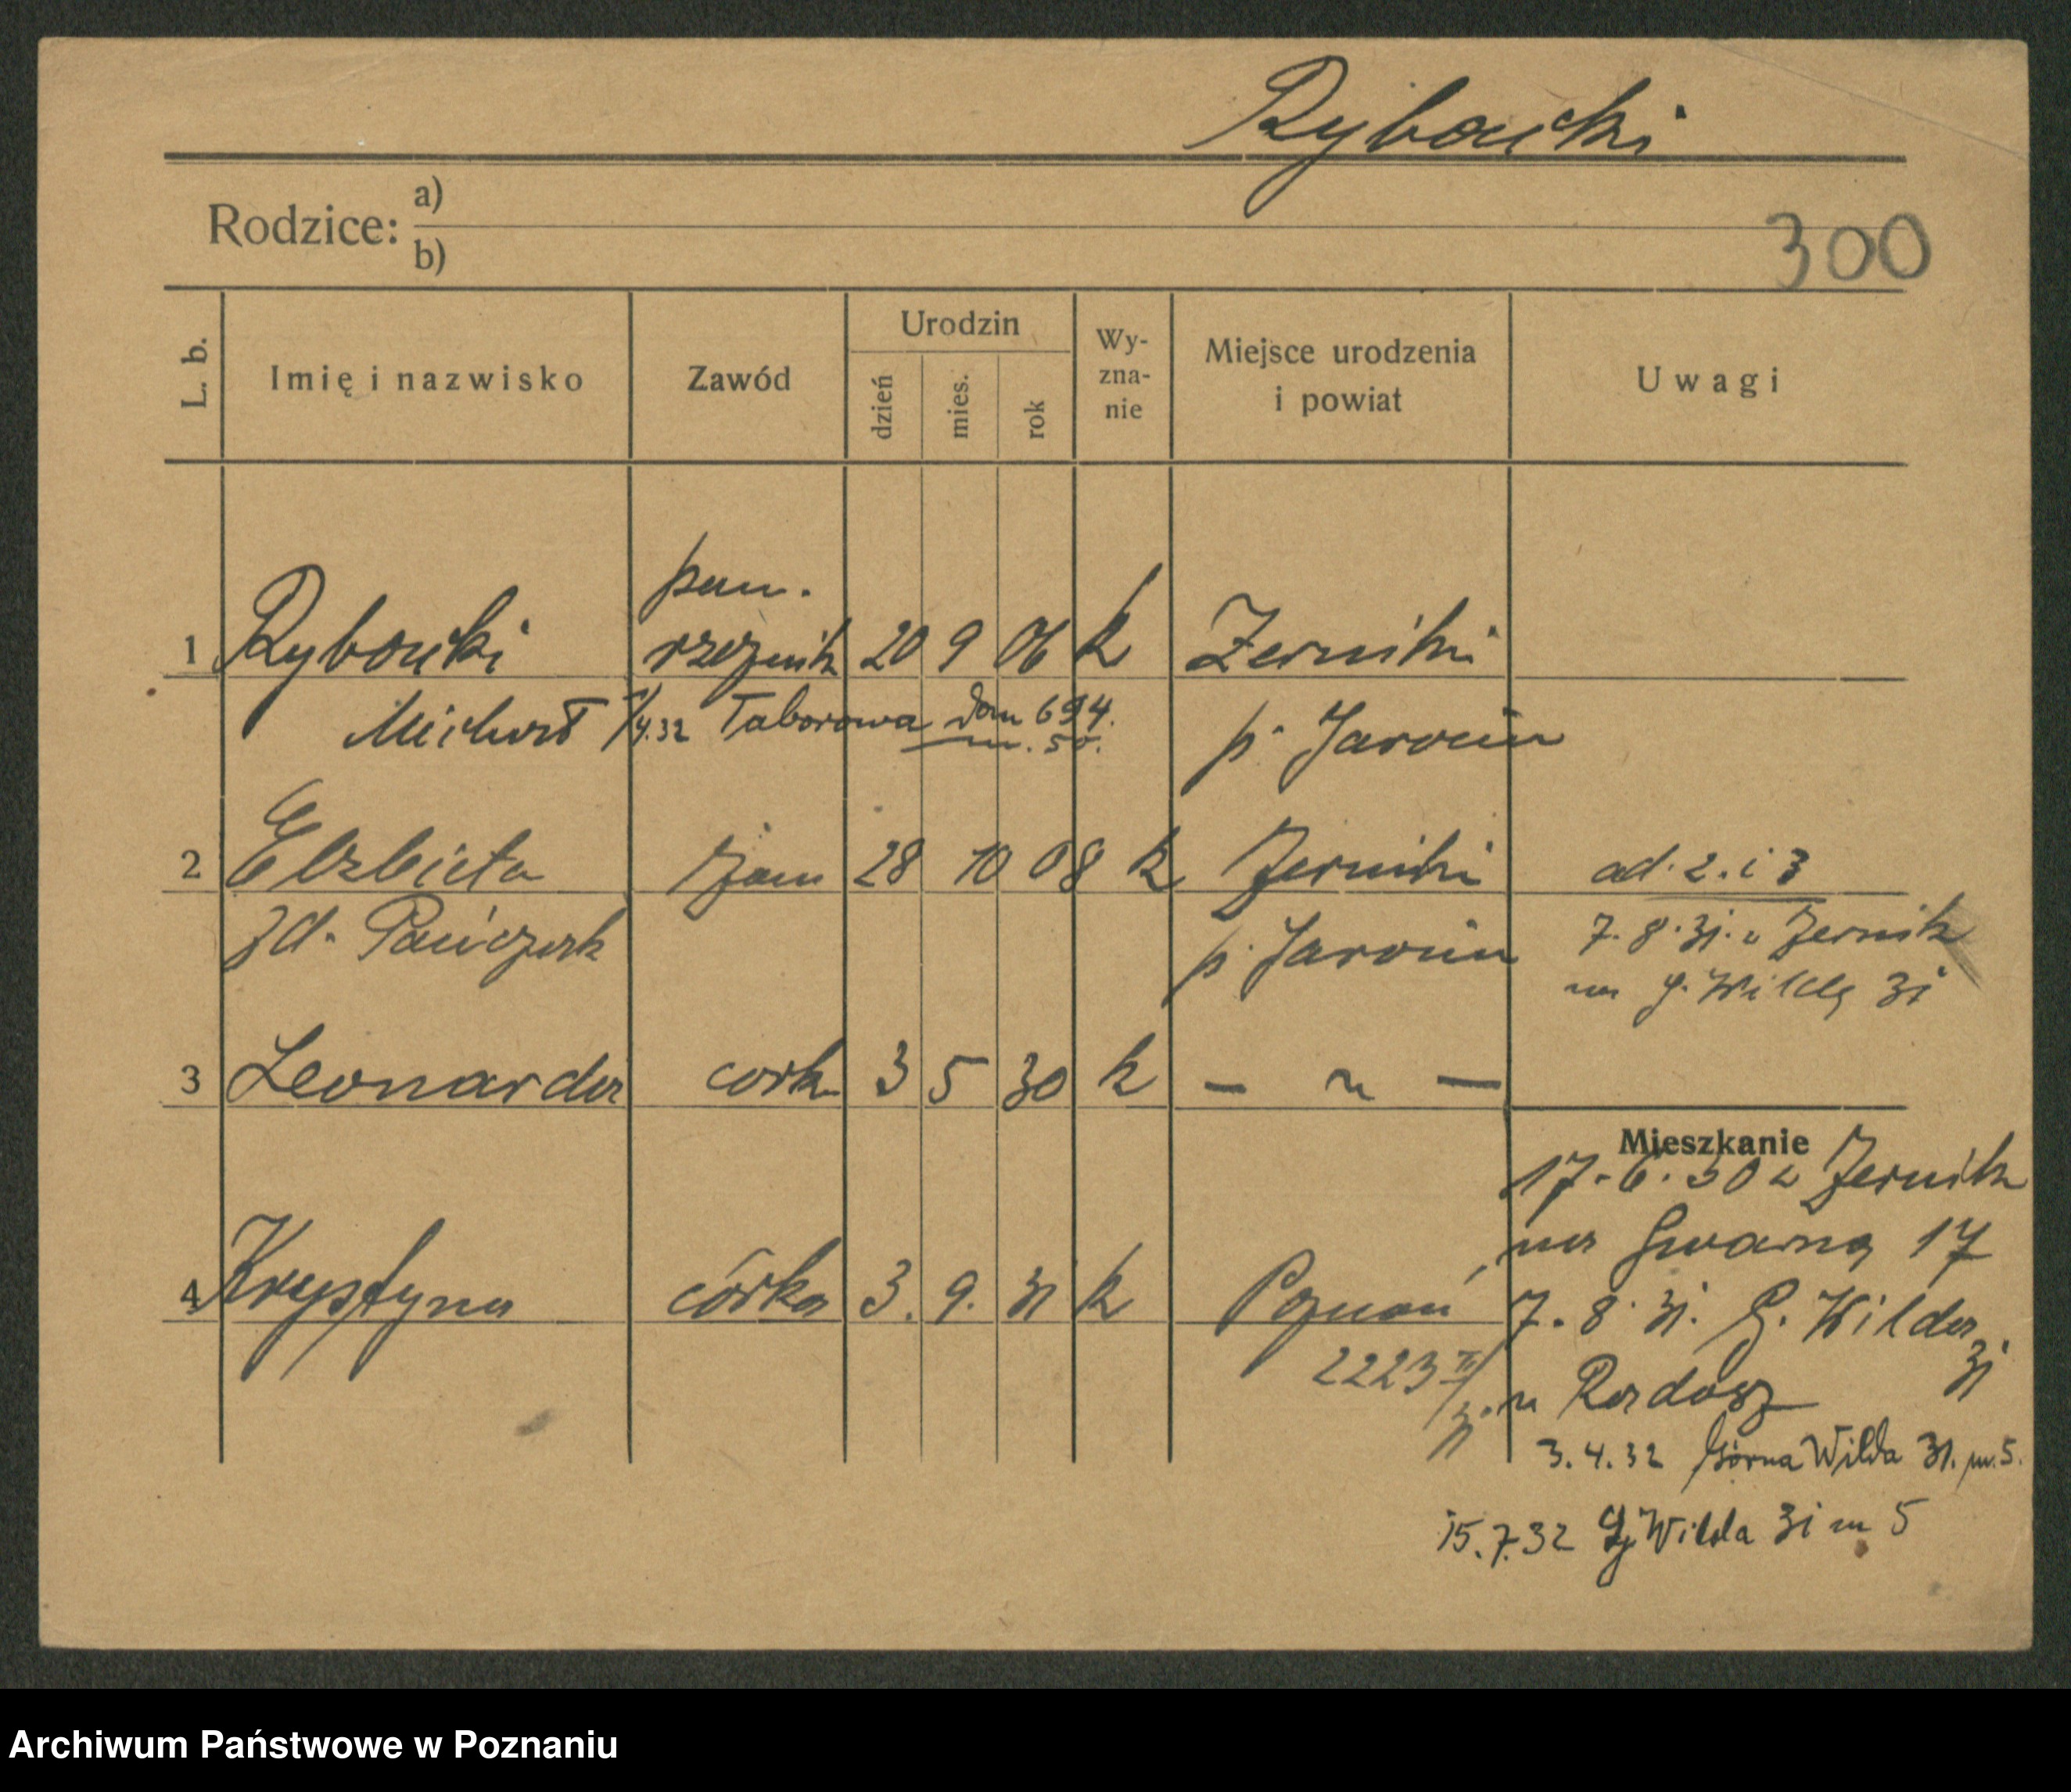 Rybacki
Rodzice: a)
b)
300
L. b. Imię i nazwisko Zawód Urodzin dzień mies. rok Wy-zna-nie Miejsce urodzenia i powiat Uwagi
pam.
1 Rybacki rzeźnik 20 9 06 k Zerniki
Michał 1/4.32 Taborowa dom 694. m. 50. p. Jarocin
2 Elzbieta żona 28 10 08 k Zerniki ad. 2. i 3
zd. p. Jarocin 7. 8. 31. z Zernik
na G. Wildę 31
3 Leonarda cork 3 5 30 k — „ —
Mieszkanie
17. 6. 30 z Zernik
na Gwarną 17
4 Krystyna córka 3. 9. 31 k Poznań 7. 8. 31. G. Wilda 31
2223 II/31. u Radosz
3. 4. 32 Górna Wilda 31. m. 5.
15. 7. 32 G Wilda 31 m 5
Archiwum Państwowe w Poznaniu